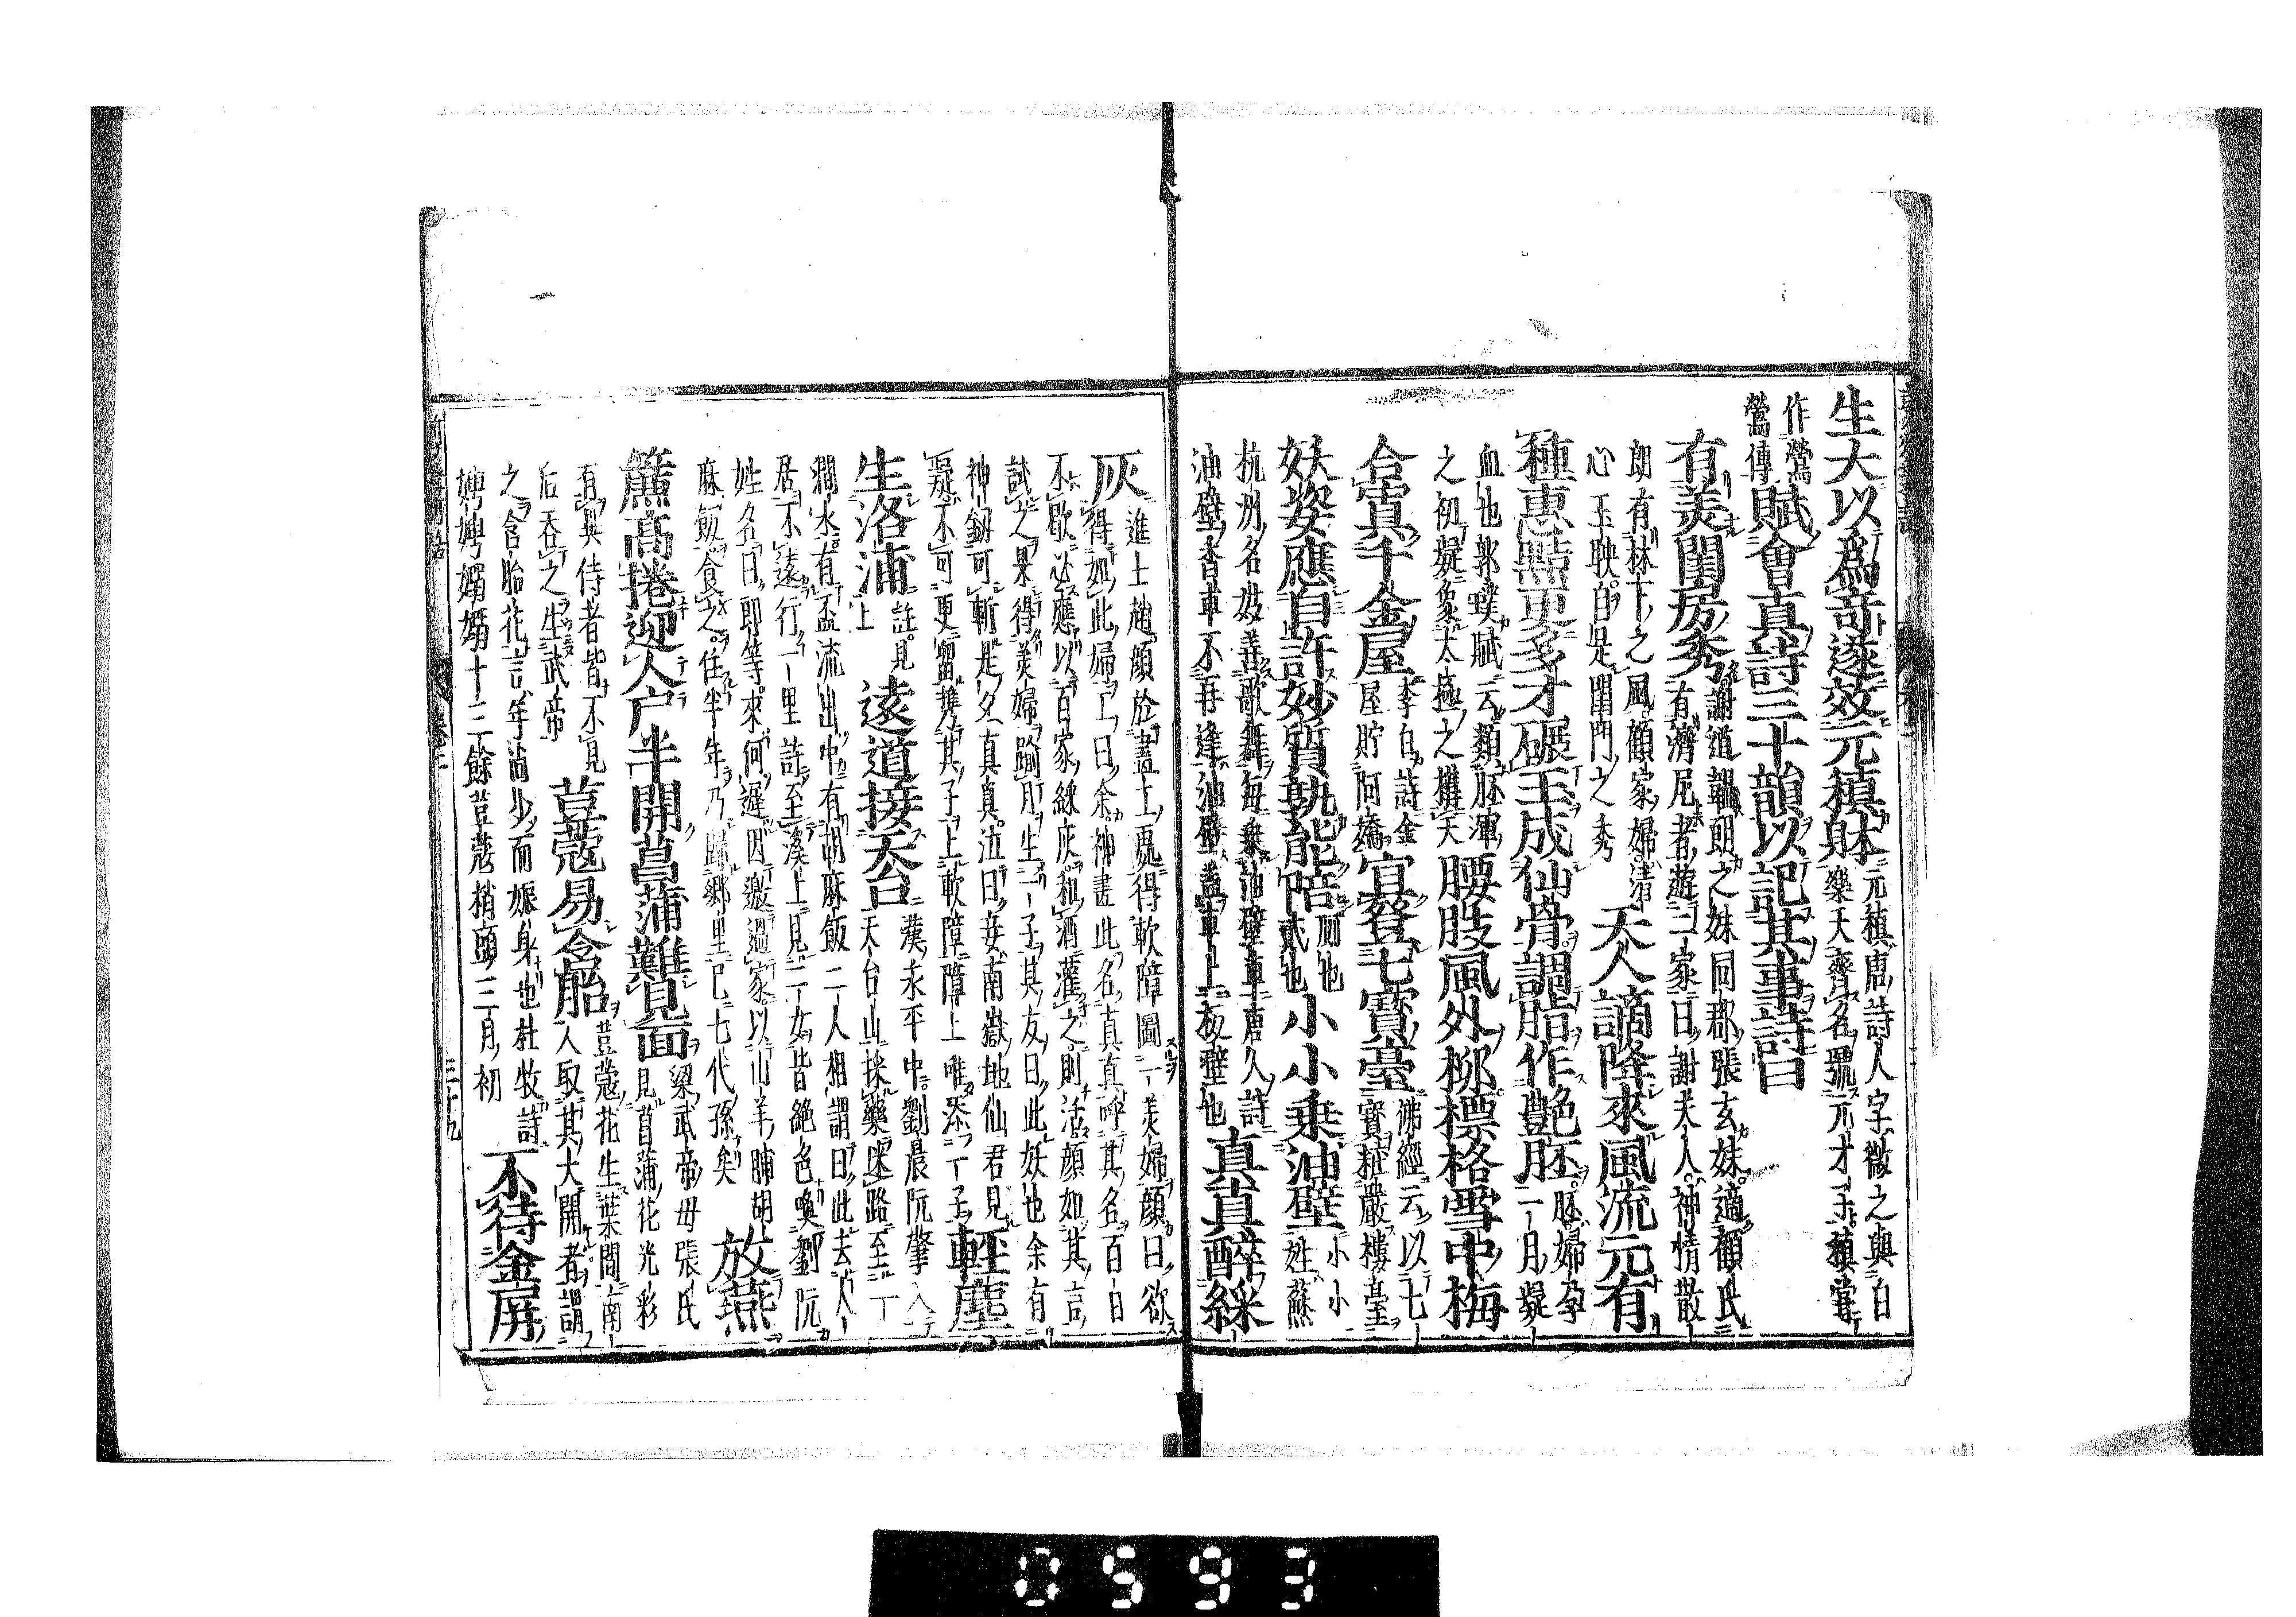 生大以爲奇遂效元稹躰
元稹唐詩人字微之與白
樂天齊名號元才子稹嘗
作鶯
鶯傳
賦會真詩三十韻以記其事詩曰
有美閨房秀
謝道韞朗之妹同郡張玄妹適顧氏
有濟尼者遊二家曰謝夫人神情散
朗有林下之風顧家婦清
心玉映自是閨門之秀
天人謫降來風流元有
種惠黠更多才碾玉成仙骨調脂作艶胚
胚婦孕
一月凝
血也郭璞賦云類胚渾
之初凝象太極之構天
腰肢風外柳標格雪中梅
合寘千金屋
李白詩金
屋貯阿嬌
宜登七寳臺
佛經云以七
寳粧嚴樓臺
妖姿應自許妙質孰能陪
厠也
貳也
小小乗油壁
小小
姓蘇
杭州名妓善歌舞每乗油壁車唐人詩
油壁香車不再逢油壁盖車上板壁也
真真醉綵
灰
進士趙顔於畫工處得軟障圖一美婦顔曰欲
得如此婦工曰余神畫此名真真呼其名百日
不歇必應以百家綵灰和酒灌之則活顔如其言
試之果得美婦踰月生一子其友曰此妖也余有
神釼可斬是夕真真泣曰妾南嶽地仙君見
疑不可更留携其子上軟障障上唯添一子
輕塵
生洛浦
註見
上
遠道接天台
漢永平中劉晨阮肇入
天台山採藥迷路至一
澗水有盃流出中有胡麻飯二人相謂曰此去人
居不遠行一里許至溪上見二女皆絶色喚劉阮
姓名曰郎等來何遲因邀過家以山羊脯胡
麻飯食之住半年乃歸鄉里已七代孫矣
放燕
簾高捲迎人户半開菖蒲難見面
梁武帝母張氏
見菖蒲花光彩
有異侍者皆不見
后吞之生武帝
荳蔲易含胎
荳蔲花生葉間南
人取其大開者謂
之含胎花言年尚少而娠身也杜牧詩
娉娉嫋嫋十三餘荳蔲梢頭二月初
不待金屏
三十九